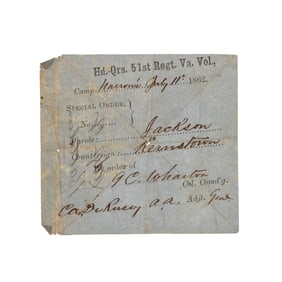 Hd.-Qrs. 51st Regt. Va. Vol.,
Camp Narrows July 11th 1862.
SPECIAL ORDER,
No.
Parole: Jackson
Countersign: Kernstown
By order of
G C. Wharton
Col. Comd'g.
A. A. Adjt. Genl